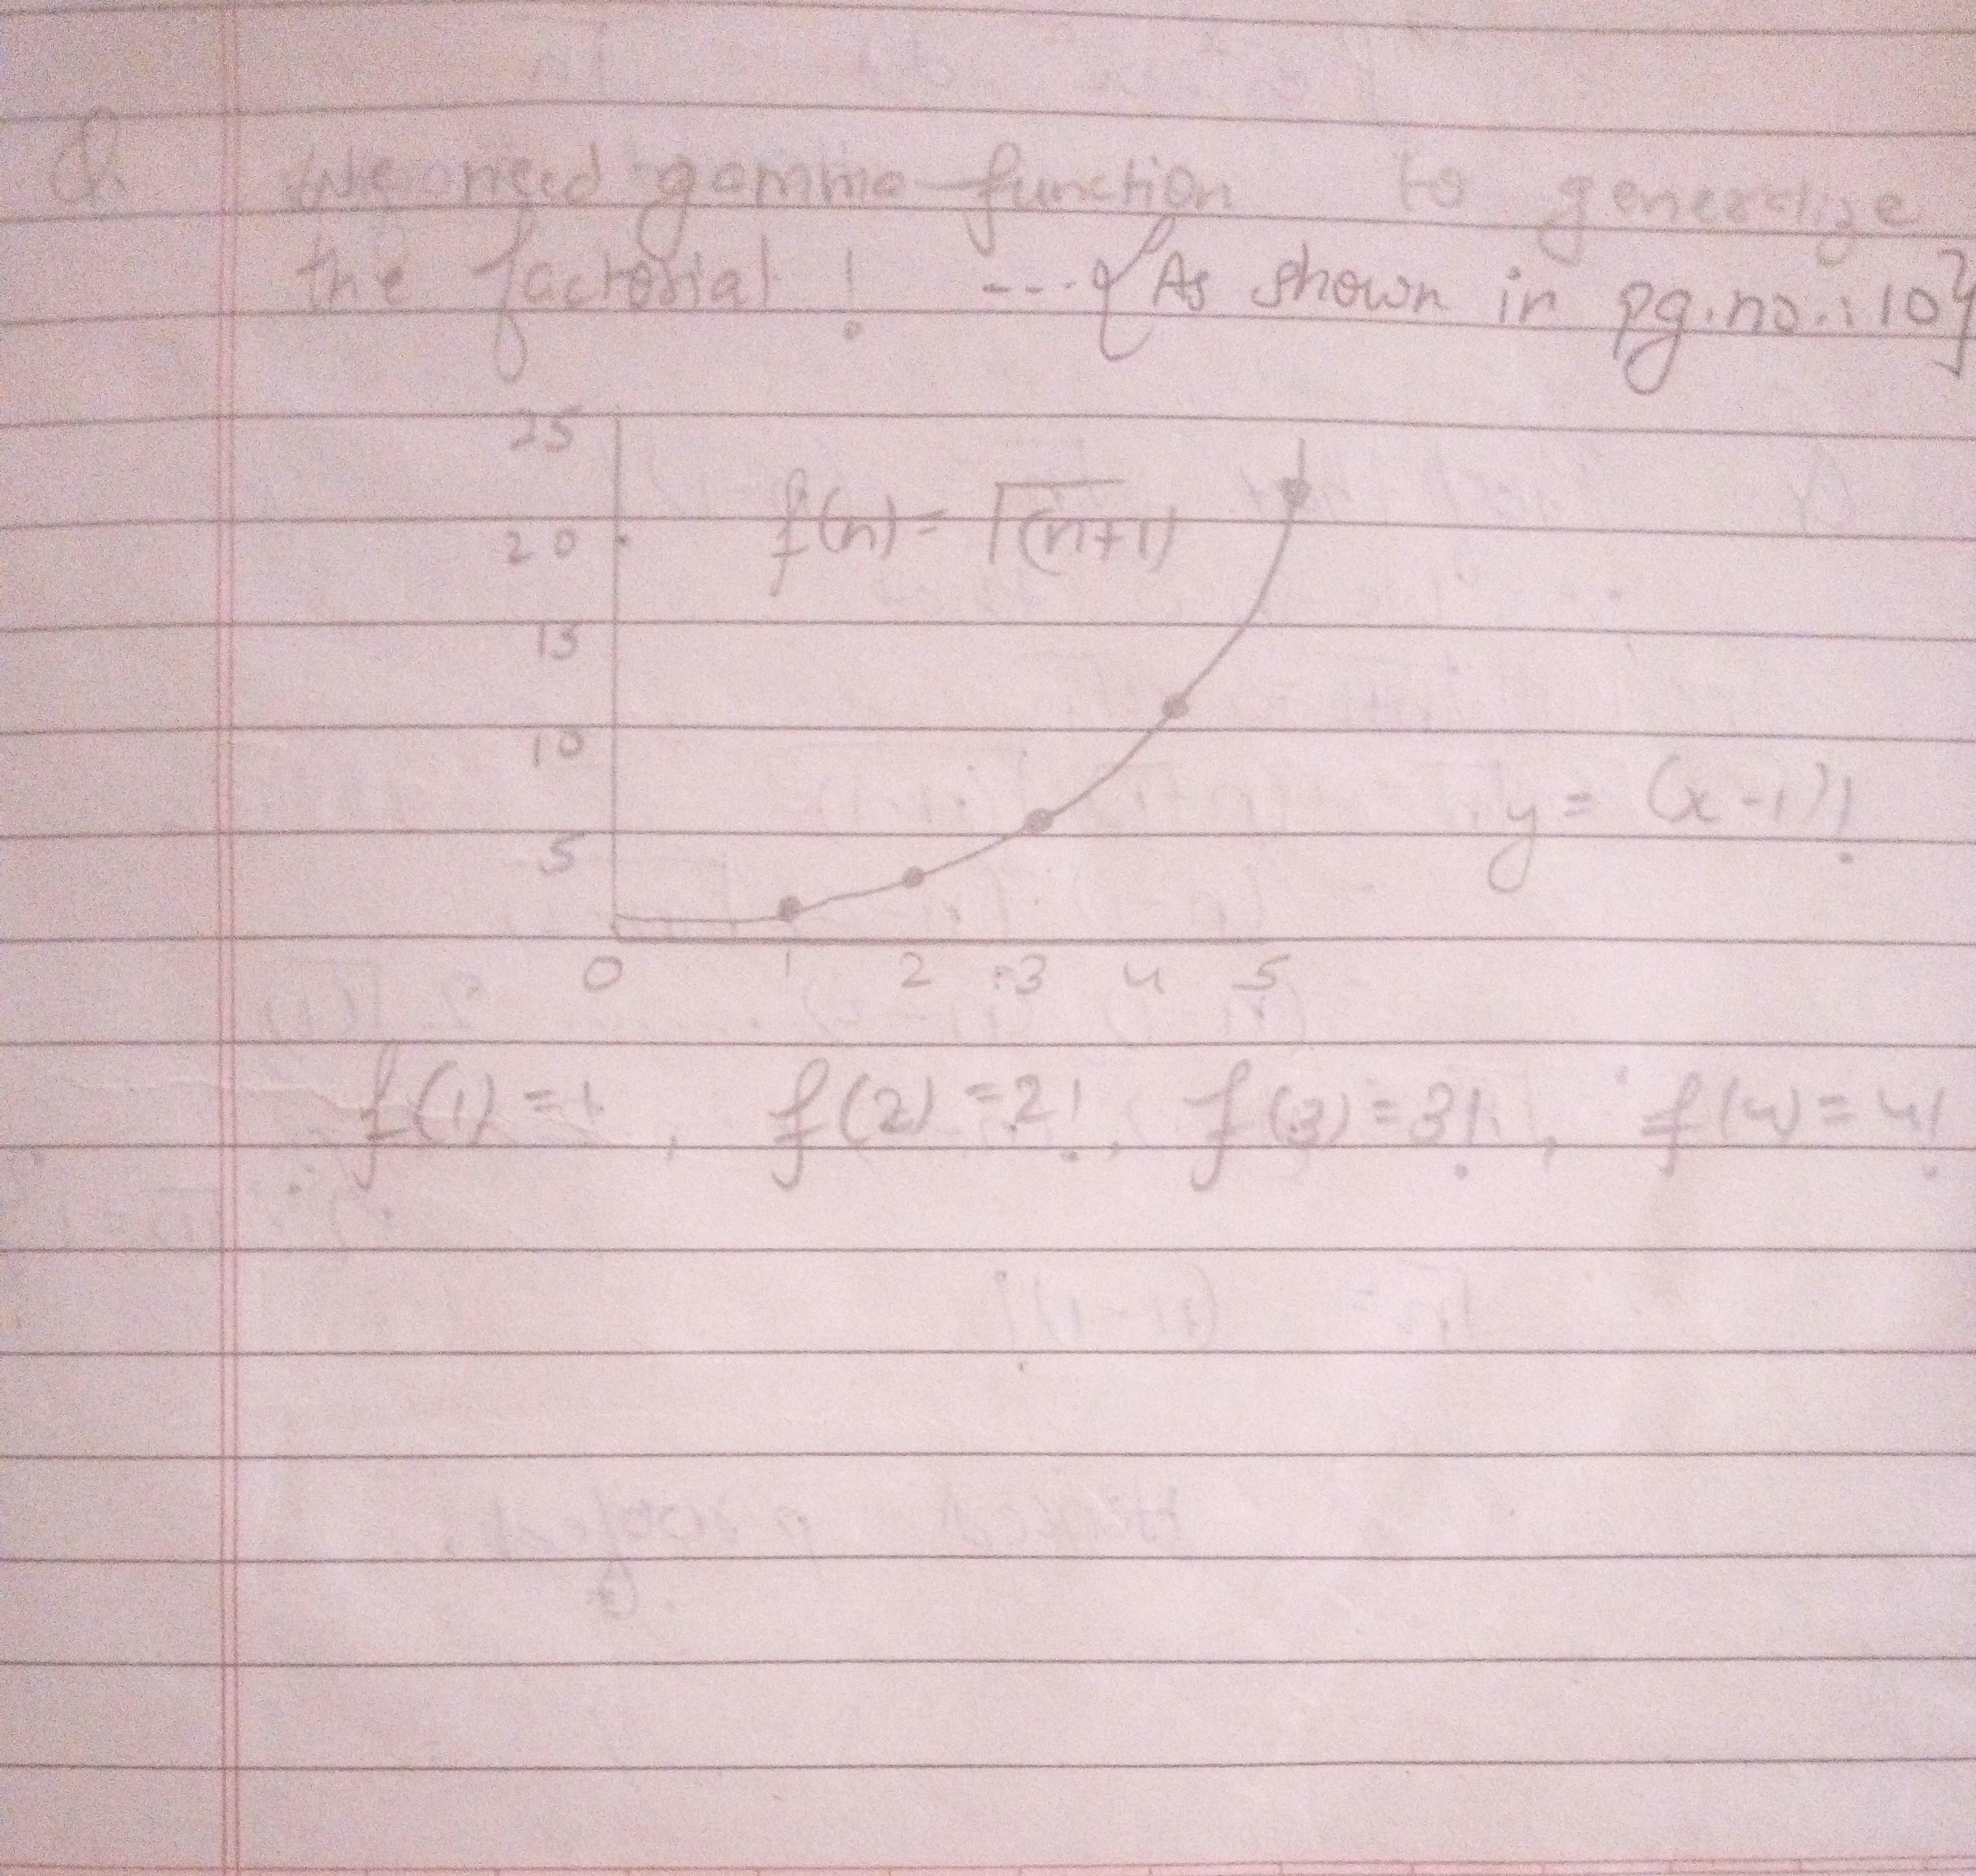 Q. We need gamma function to generalize
the factorial ! ---{As shown in pg.no.:10}
25
f(n) = Γ(n+1)
20
15
10
y = (x-1)!
5
0 1 2 3 4 5
f(1) = 1, f(2) = 2!, f(3) = 3!, f(4) = 4!